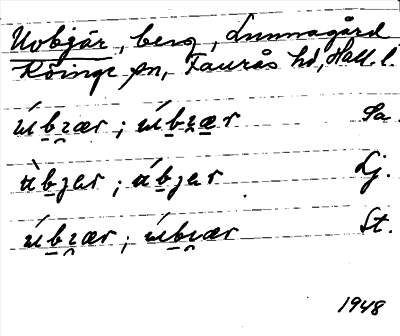 Uvbjär, berg, Lunnagård
Köinge sn, Faurås hd, Hall. l.
ú b ɪ ær ; ú b ɪ æ r Sa.
ù b jer ; ú b jer Lj.
ú b ɪ ær ; ú b ɪ ær St.
1948